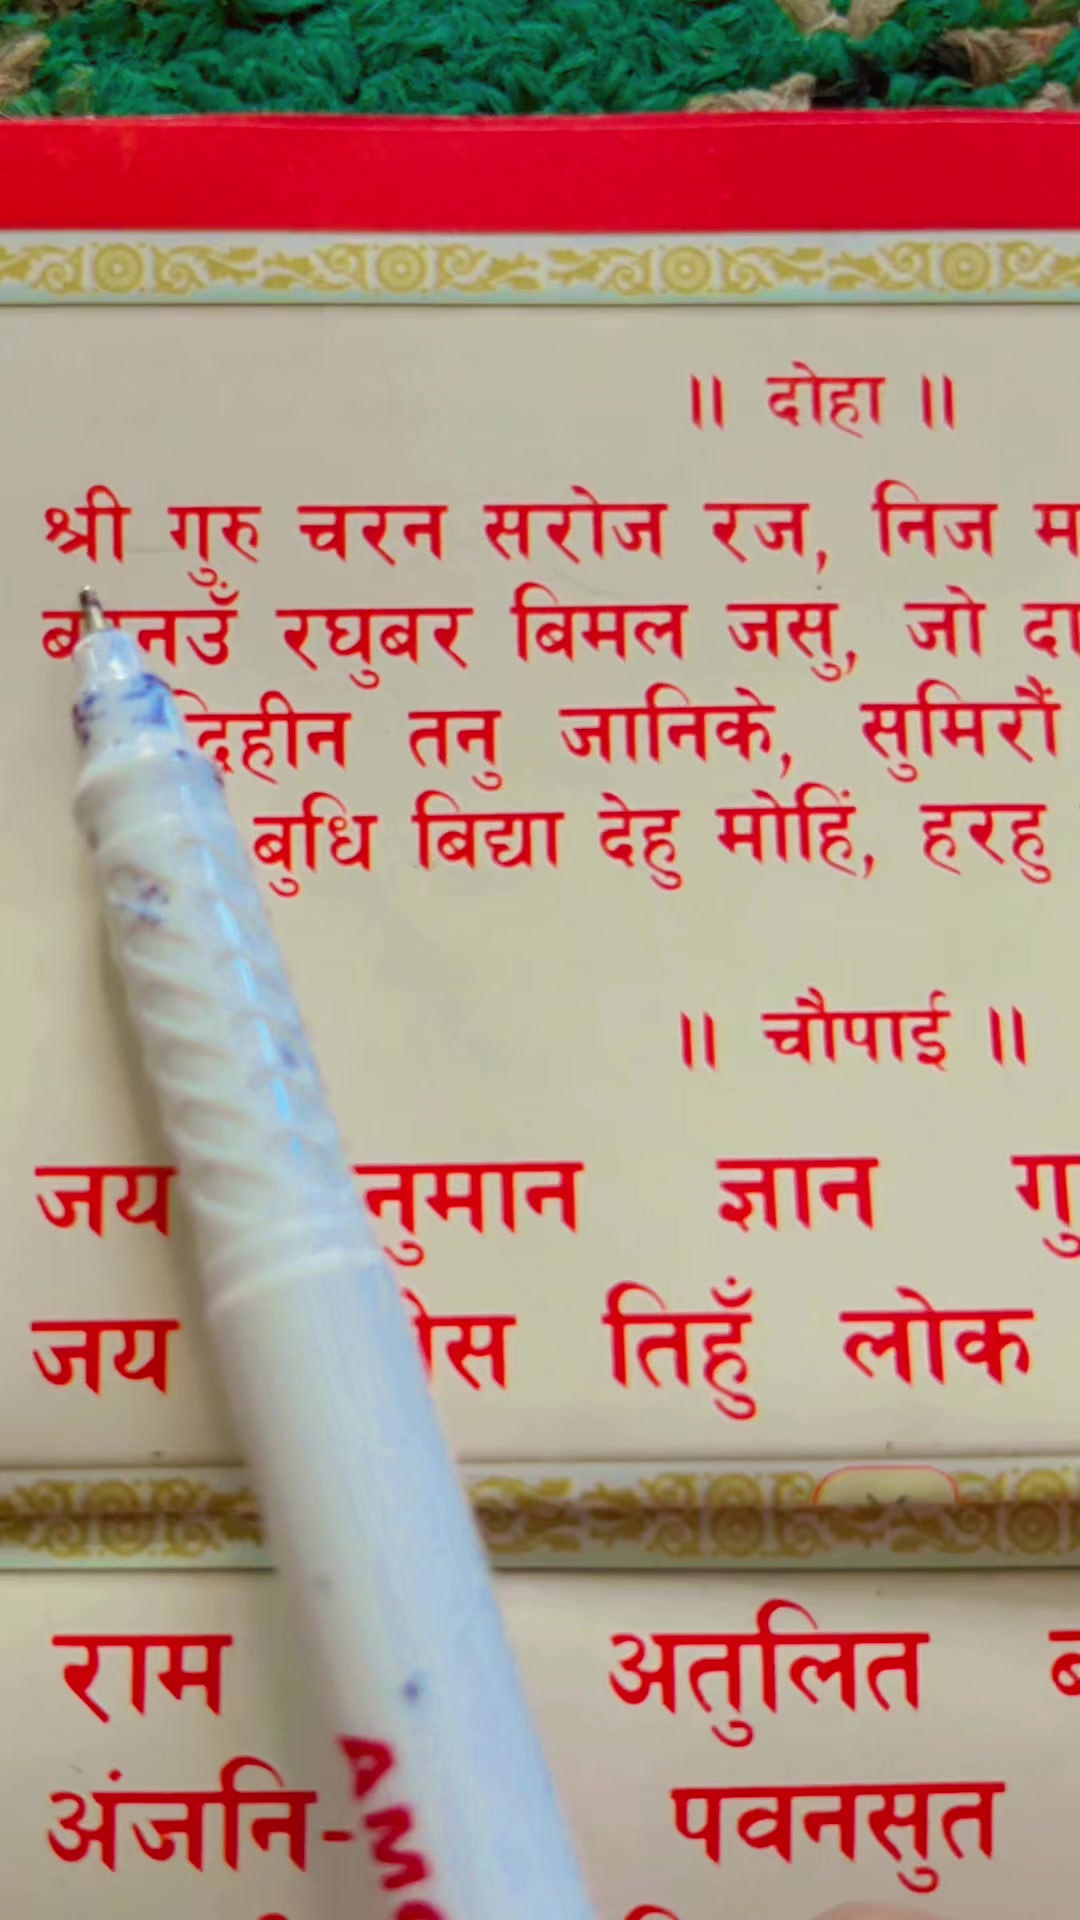 ॥ दोहा ॥
श्री गुरु चरन सरोज रज, निज म
रघुबर बिमल जसु, जो दा
तनु जानिके, सुमिरौं
बुधि बिद्या देहु मोहिं, हरहु
॥ चौपाई ॥
जय नुमान ज्ञान गु
जय स तिहुँ लोक
राम अतुलित ब
अंजनि- पवनसुत
AM